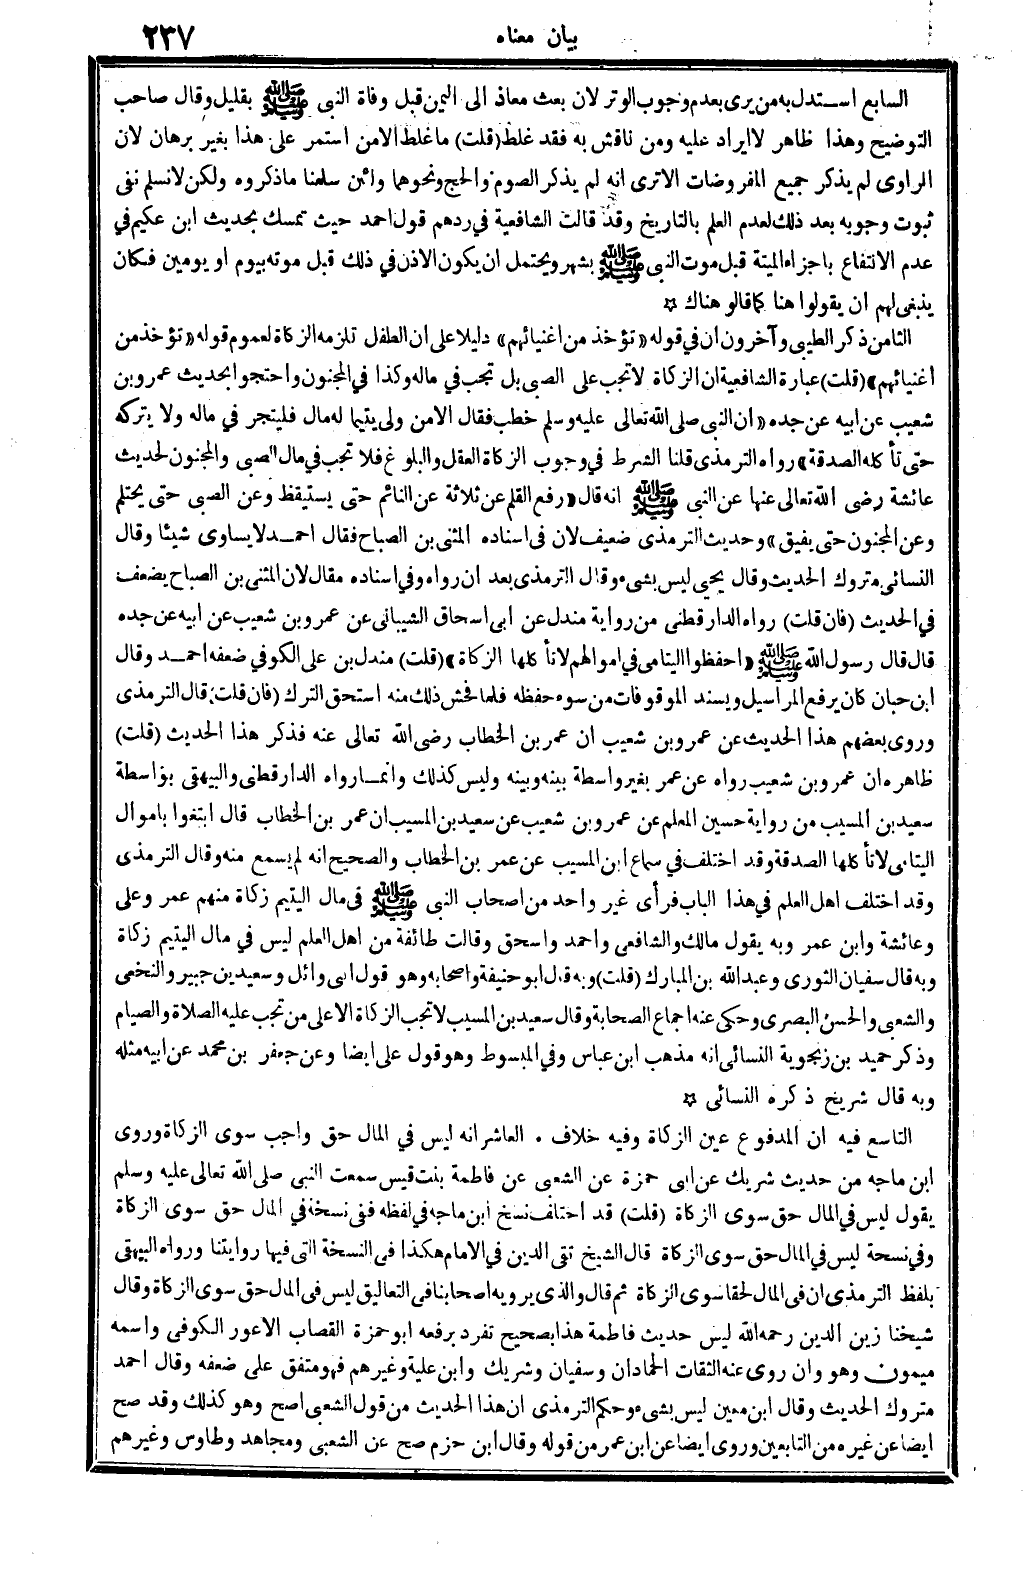 بيان معناه ٢٣٧
السابع استدل به من يرى بعدم وجوب الوتر لان بعث معاذ الى اليمن قبل وفاة النبى ﷺ بقليل وقال صاحب
التوضيح وهذا ظاهر لا ايراد عليه ومن ناقش به فقد غلط (قلت) ما غلط الا من استمر على هذا بغير برهان لان
الراوى لم يذكر جميع المفروضات الاترى انه لم يذكر الصوم والحج ونحوهما وائن سلمنا ماذكروه ولكن لانسلم نفى
ثبوت وجوبه بعد ذلك لعدم العلم بالتاريخ وقد قالت الشافعية في ردهم قول احمد حيث تمسك بحديث ابن عكيم في
عدم الانتفاع باجزاء الميتة قبل موت النبى ﷺ بشهر ويحتمل ان يكون الاذن في ذلك قبل موته بيوم او يومين فكان
ينبغى لهم ان يقولوا هنا كما قالو هناك ☆
الثامن ذكر الطيبى وآخرون ان في قوله «تؤخذ من اغنيائهم» دليلا على ان الطفل تلزمه الزكاة لعموم قوله «تؤخذ من
أغنيائهم» (قلت) عبارة الشافعية ان الزكاة لا تجب على الصبى بل تجب في ماله وكذا في المجنون واحتجوا بحديث عمرو بن
شعيب عن ابيه عن جده «ان النبى صلى الله تعالى عليه وسلم خطب فقال الا من ولى يتيما له مال فليتجر في ماله ولا يتركه
حتى تأ كله الصدقة» رواه الترمذى قلنا الشرط في وجوب الزكاة العقل والبلوغ فلا تجب في مال الصبى والمجنون لحديث
عائشة رضى الله تعالى عنها عن النبى ﷺ انه قال «رفع القلم عن ثلاثة عن النائم حتى يستيقظ وعن الصبى حتى يحتلم
وعن المجنون حتى يفيق» وحديث الترمذى ضعيف لان في اسناده المثنى بن الصباح فقال احمد لا يساوى شيئا وقال
النسائى متروك الحديث وقال يحيى ليس بشىء وقال الترمذى بعد ان رواه وفي اسناده مقال لان المثنى بن الصباح يضعف
في الحديث (فان قلت) رواه الدارقطنى من رواية مندل عن ابى اسحاق الشيبانى عن عمرو بن شعيب عن ابيه عن جده
قال قال رسول الله ﷺ «احفظوا اليتامى في اموالهم لاتأ كلها الزكاة» (قلت) مندل بن على الكوفي ضعفه احمد وقال
ابن حبان كان يرفع المراسيل ويسند الموقوفات من سوء حفظه فلما فحش ذلك منه استحق الترك (فان قلت) قال الترمذى
وروى بعضهم هذا الحديث عن عمرو بن شعيب ان عمر بن الخطاب رضى الله تعالى عنه فذكر هذا الحديث (قلت)
ظاهره ان عمرو بن شعيب رواه عن عمر بغير واسطة بينه وبينه وليس كذلك وانما رواه الدارقطنى والبيهقى بواسطة
سعيد بن المسيب من رواية حسين المعلم عن عمرو بن شعيب عن سعيد بن المسيب ان عمر بن الخطاب قال ابتغوا باموال
اليتامى لاتأ كلها الصدقة وقد اختلف في سماع ابن المسيب عن عمر بن الخطاب والصحيح انه لم يسمع منه وقال الترمذى
وقد اختلف اهل العلم في هذا الباب فرأى غير واحد من اصحاب النبى ﷺ في مال اليتيم زكاة منهم عمر وعلى
وعائشة وابن عمر وبه يقول مالك والشافعى واحمد واسحق وقالت طائفة من اهل العلم ليس في مال اليتيم زكاة
وبه قال سفيان الثورى وعبدالله بن المبارك (قلت) وبه قال ابو حنيفة واصحابه وهو قول ابى وائل وسعيد بن جبير والنخعى
والشعبى والحسن البصرى وحكى عنه اجماع الصحابة وقال سعيد بن المسيب لاتجب الزكاة الا على من تجب عليه الصلاة والصيام
وذكر حميد بن زنجوية النسائى انه مذهب ابن عباس وفي المبسوط وهو قول على ايضا وعن جعفر بن محمد عن ابيه مثله
وبه قال شريخ ذكره النسائى ☆
التاسع فيه ان المدفوع عين الزكاة وفيه خلاف . العاشر انه ليس في المال حق واجب سوى الزكاة وروى
ابن ماجه من حديث شريك عن ابى حمزة عن الشعبى عن فاطمة بنت قيس سمعت النبى صلى الله تعالى عليه وسلم
يقول ليس في المال حق سوى الزكاة (قلت) قد اختلف نسخ ابن ماجه في لفظه ففى نسخة في المال حق سوى الزكاة
وفي نسخة ليس في المال حق سوى الزكاة قال الشيخ تقى الدين في الامام هكذا في النسخة التى فيها روايتنا ورواه البيهقى
بلفظ الترمذى ان في المال لحقا سوى الزكاة ثم قال والذى يرويه اصحابنا في التعاليق ليس في المال حق سوى الزكاة وقال
شيخنا زين الدين رحمه الله ليس حديث فاطمة هذا بصحيح تفرد برفعه ابو حمزة القصاب الاعور الكوفى واسمه
ميمون وهو وان روى عنه الثقات الحمادان وسفيان وشريك وابن علية وغيرهم فهو متفق على ضعفه وقال احمد
متروك الحديث وقال ابن معين ليس بشىء وحكم الترمذى ان هذا الحديث من قول الشعبى اصح وهو كذلك وقد صح
ايضا عن غيره من التابعين وروى ايضا عن ابن عمر من قوله وقال ابن حزم صح عن الشعبى ومجاهد وطاوس وغيرهم